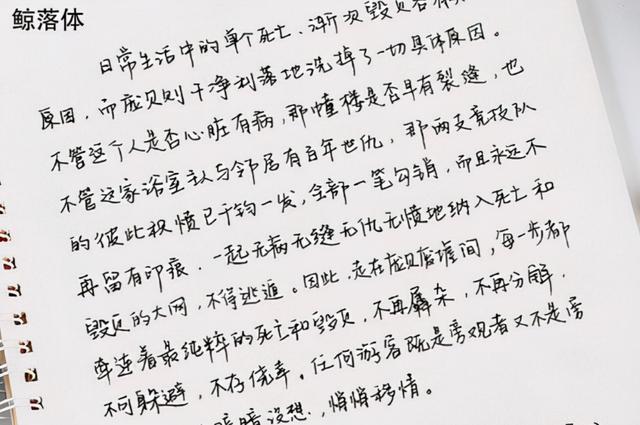 鲸落体
日常生活中的单个死亡、渐次毁灭各有
原因，而庞贝则干净利落地洗掉了一切具体原因。
不管这个人是否心脏有病，那幢楼是否早有裂缝，也
不管这家浴室主人与邻居有百年世仇，那两支竞技队
的彼此积愤已千钧一发，全部一笔勾销，而且永远不
再留有印痕．一起无病无缝无仇无愤地纳入死亡和
毁灭的大网，不得逃遁。因此，走在庞贝废墟间，每一步都
牵连着最纯粹的死亡和毁灭，不再羼杂，不再分解，
不可躲避，不存侥幸。任何游客既是旁观者又不是旁
暗没想，悄悄移情。